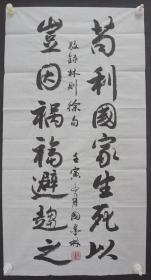 苟利國家生死以
豈因祸福避趨之
敬録林则徐句
壬寅